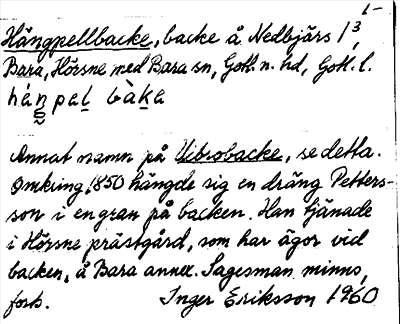 1–
Hängpellbacke, backe å Nedbjärs 1³,
Bara, Hörsne med Bara sn, Gotl. n. hd, Gotl. l.
Annat namn på Vibrobacke, se detta.
Omkring 1850 hängde sig en dräng Petters-
son i en gran på backen. Han tjänade
i Hörsne prästgård, som har ägor vid
backen, å Bara annex. Sagesman minns,
forts. Inger Eriksson 1960